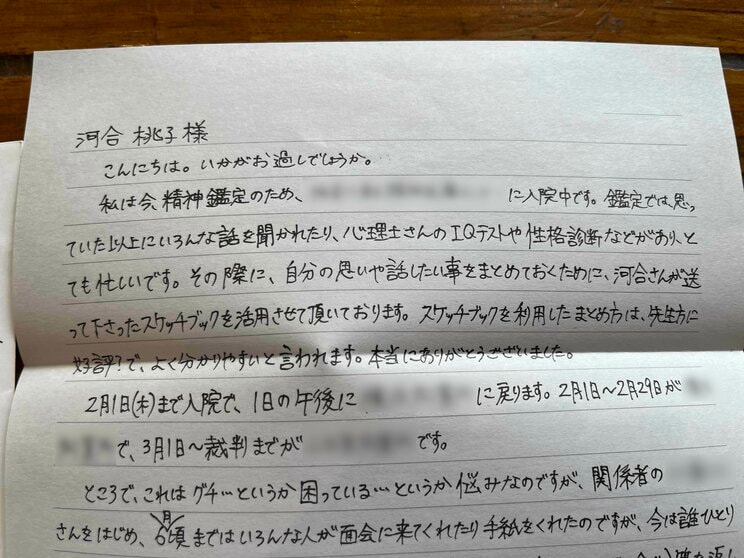 河合 桃子 様
こんにちは。いかがお過しでしょうか。
私は今 精神鑑定のため、 に入院中です。鑑定では、思っ
ていた以上にいろんな話を聞かれたり、心理士さんのIQテストや性格診断などがあり、と
ても忙しいです。その際に、自分の思いや話したい事をまとめておくために、河合さんが送
って下さったスケッチブックを活用させて頂いております。スケッチブックを利用したまとめ方は、先生方に
好評?で、よく分かりやすいと言われます。本当にありがとうございました。
2月1日(木)まで入院で、1日の午後に に戻ります。2月1日~2月29日が
で、3月1日~裁判までが です。
ところで、これはグチ…というか困っている…というか悩みなのですが、関係者の
さんをはじめ、6月頃まではいろんな人が面会に来てくれたり手紙をくれたのですが、今は誰ひとり